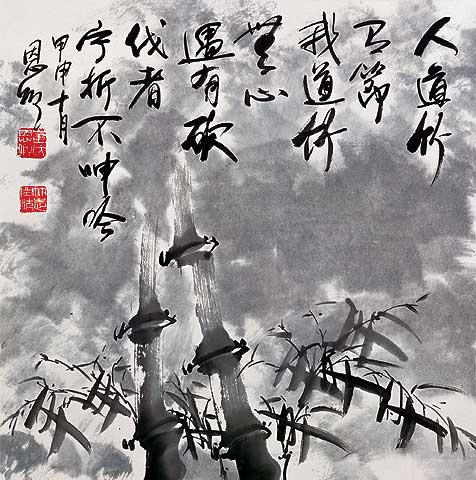 人道竹
有節
我道竹
無心
遇有砍
伐者
宁折不呻吟
甲申十月
恩